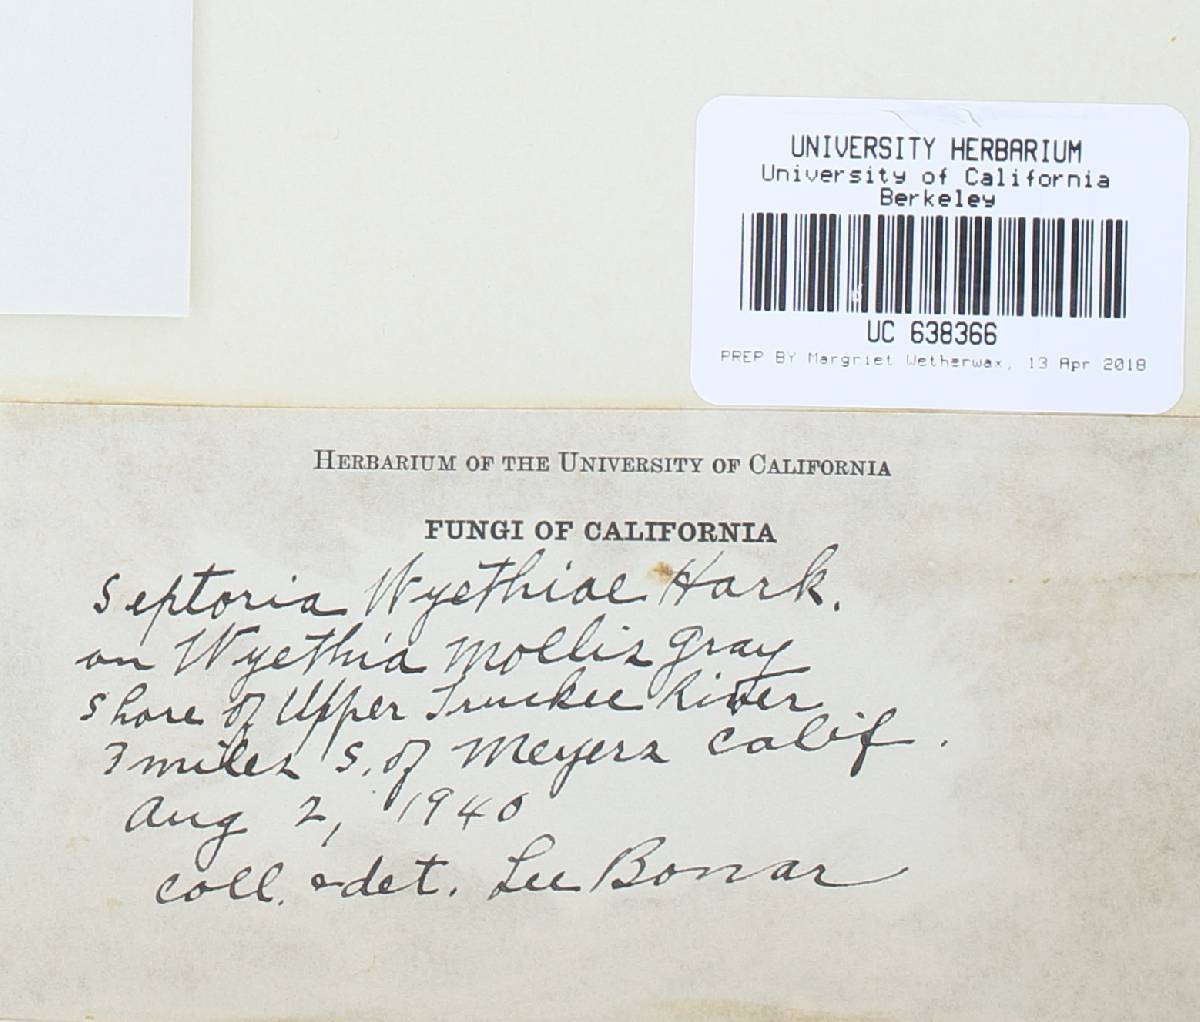 UNIVERSITY HERBARIUM
University of California
Berkeley
UC 638366
PREP BY Margriet Wetherwax, 13 Apr 2018
HERBARIUM OF THE UNIVERSITY OF CALIFORNIA
FUNGI OF CALIFORNIA
Septoria Wyethiae Hark.
on Wyethia mollis Gray
Shore of Upper Truckee River
7 miles S. of Meyers Calif.
Aug 2, 1940
coll. & det. Lee Bonar